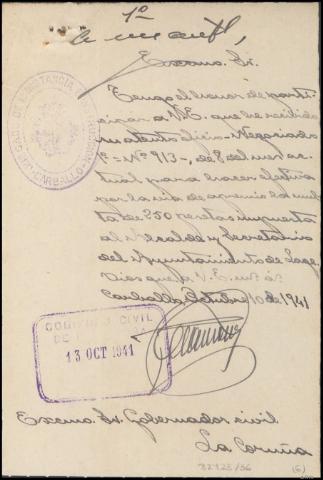 1º
Excmo. Sr.
Tengo el honor de parti-
cipar a V.E. que he recibido
su atento oficio-Negociado
1º= Nº 913-, de 8 del mes ac-
tual para hacer efectiva
por la via de apremio la mul-
ta de 250 pesetas impuesta
al Alcalde y Secretario
del Ayuntamiento de Lage.
Dios gue. a V. E. m. a.
Carballo Octubre 10 de 1941
GOBIERNO CIVIL
DE
13 OCT 1941
Excmo. Sr. Gobernador civil
La Coruña